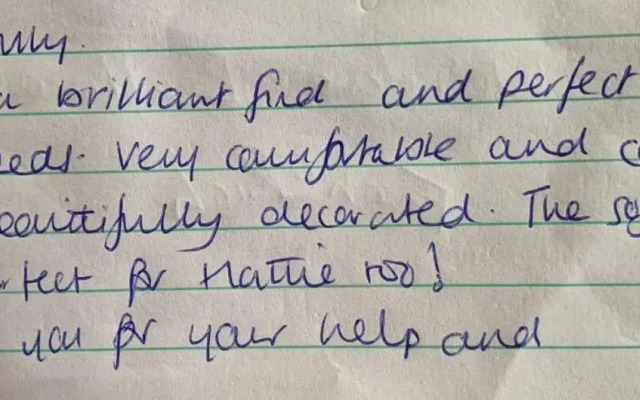 a brilliant find and perfect
very comfortable and
beautifully decorated. The
for Hattie too!
you for your help and